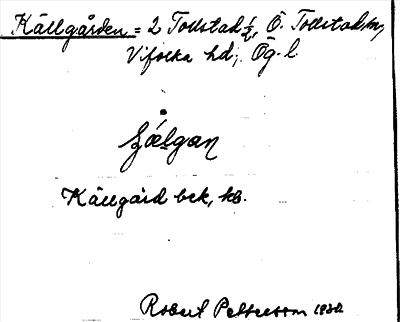 Källgården = 2 Tollstad ½, Ö. Tollstad sn,
Vifolka hd; Ög. l.
Källgård bek, kb.
Robert Pettersson